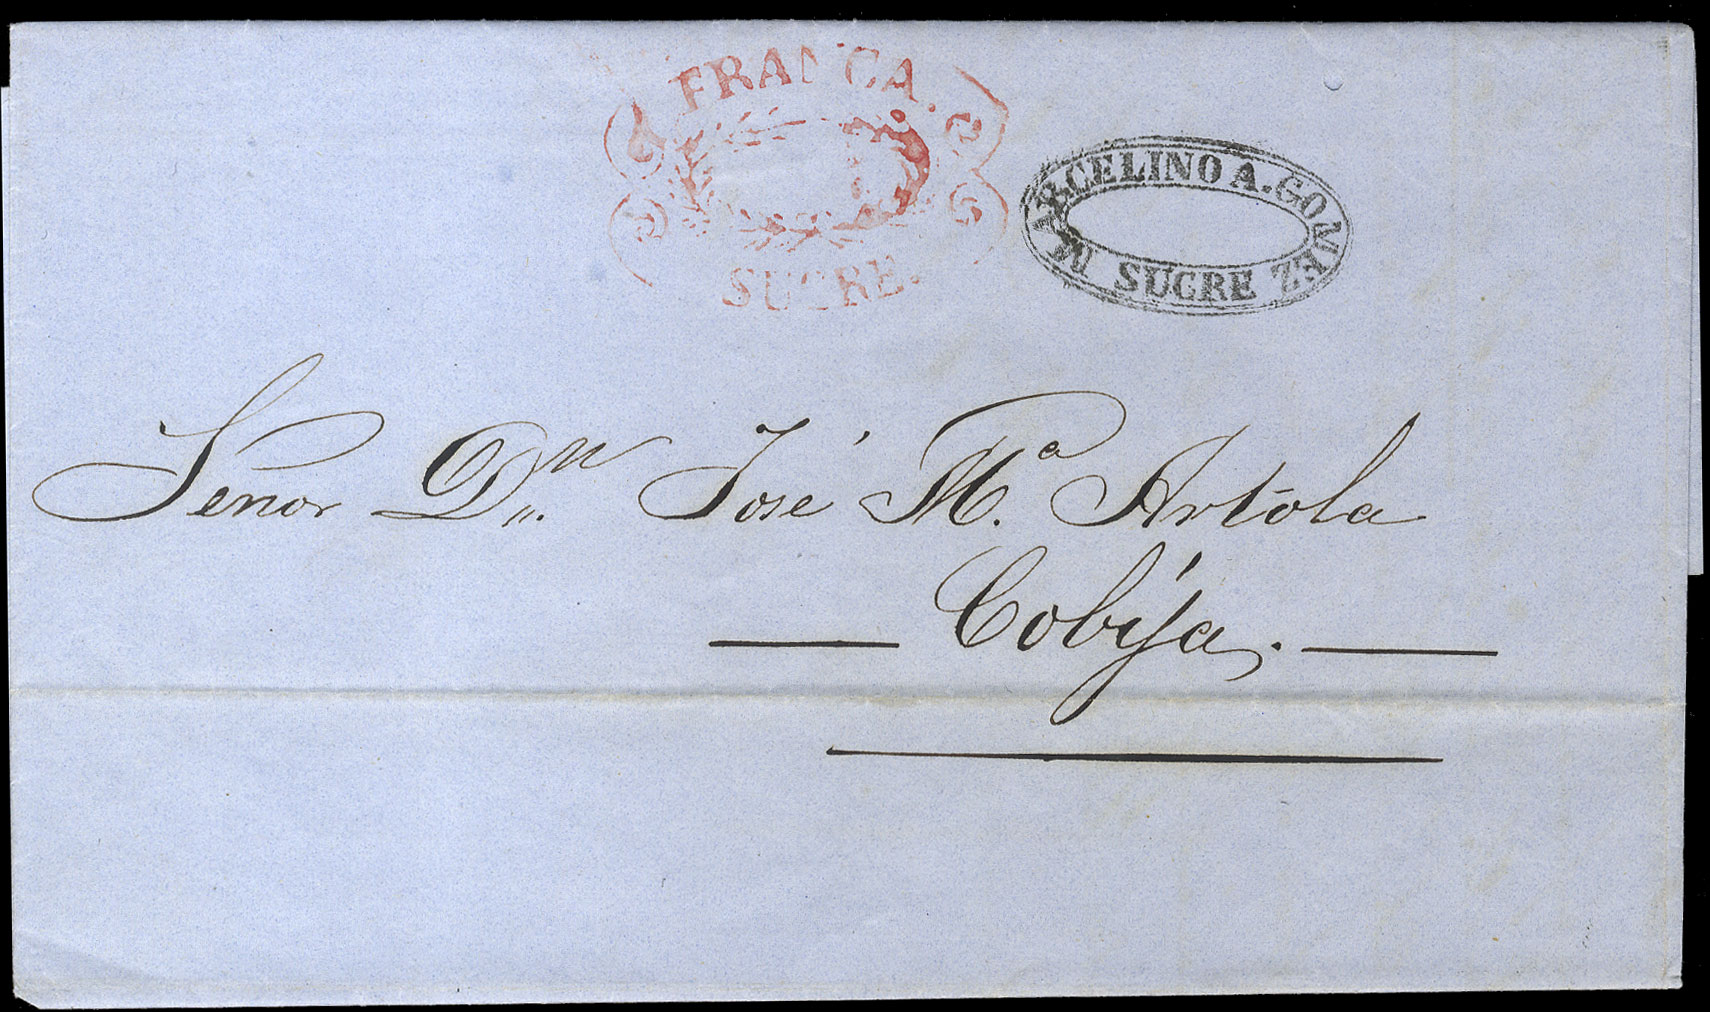 FRANCA.
SUCRE.
MARCELINO A. GOMEZ
SUCRE
Señor Dn. José Ma. Artola
Cobija.